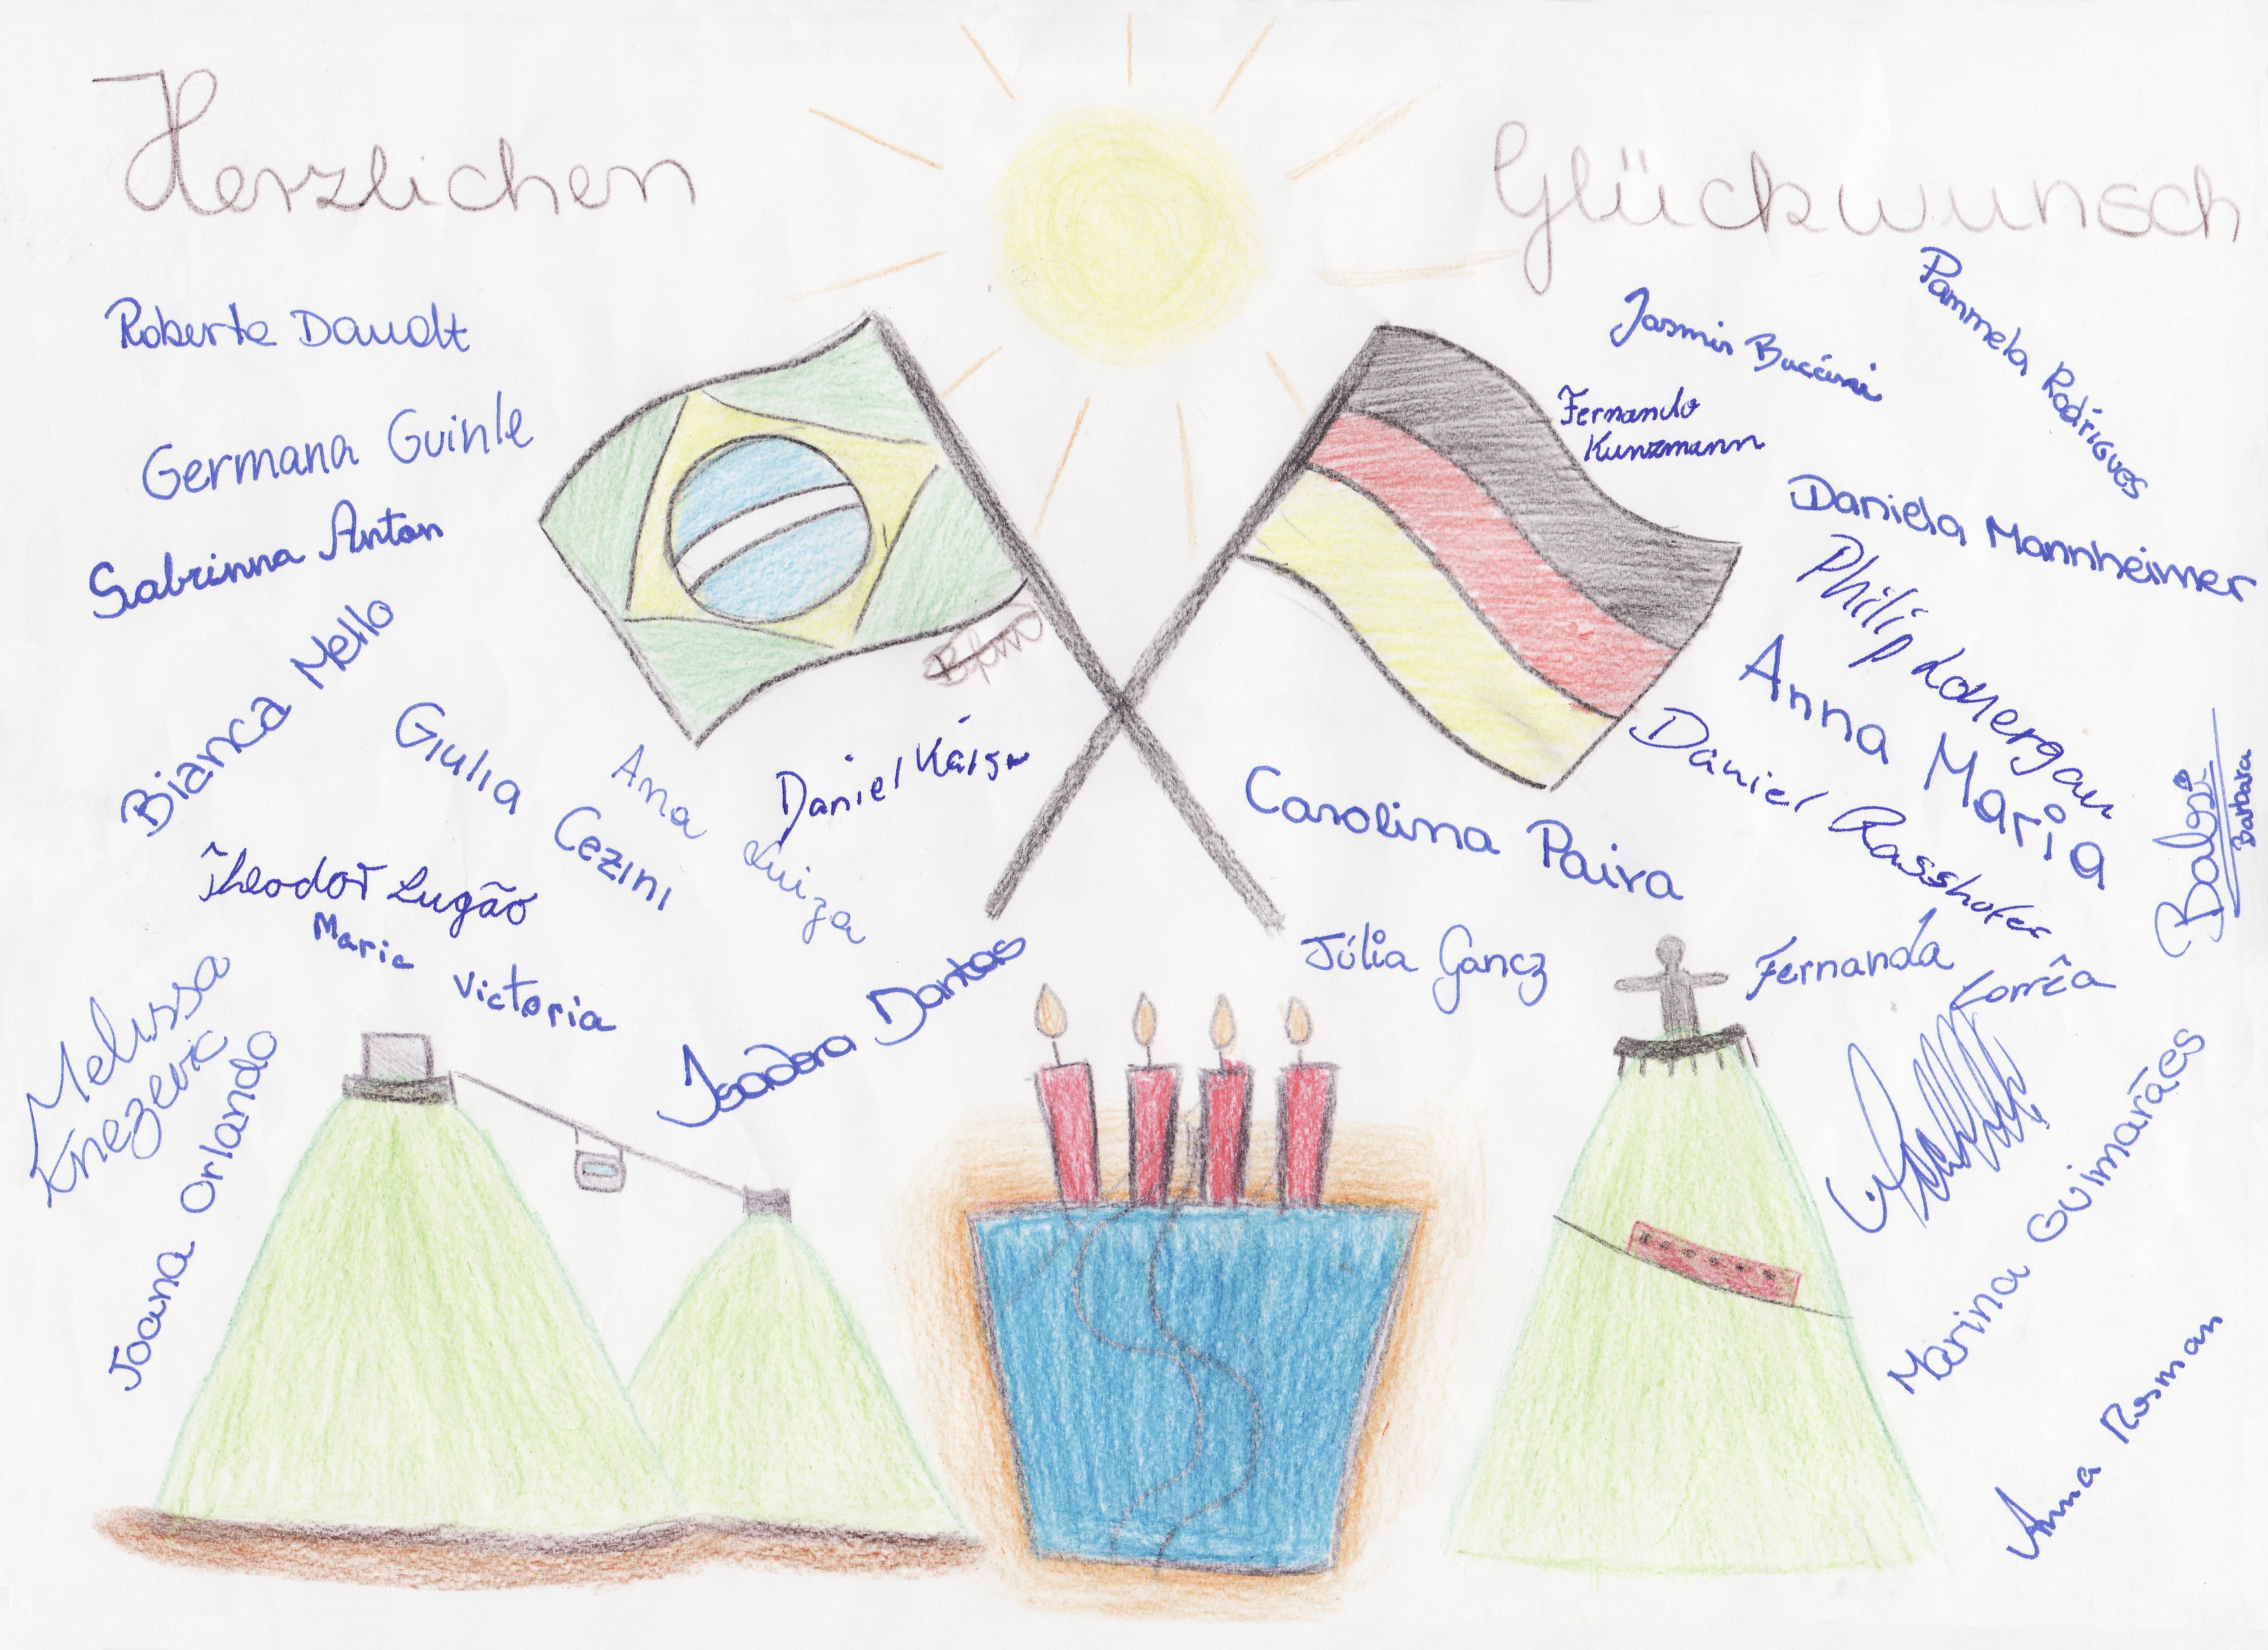 Herzlichen Glückwunsch
Roberta Daudt
Germana Guinle
Sabrinna Anton
Bianca Mello
Giulia Cezini
Ana Luiza
Daniel Kaiser
Theodor Lugão
Maria Victoria
Melissa Knezevic
Joana Orlando
Isadora Dantas
Pammela Rodrigues
Jasmin Buccini
Fernando
Kunzmann
Daniela Mannheimer
Philip Lonergan
Anna Maria
Daniel Rasshofer
Carolina Paiva
Babsi
Barbara
Júlia Gancz
Fernanda Corrêa
Marina Guimarães
Anna Rosman